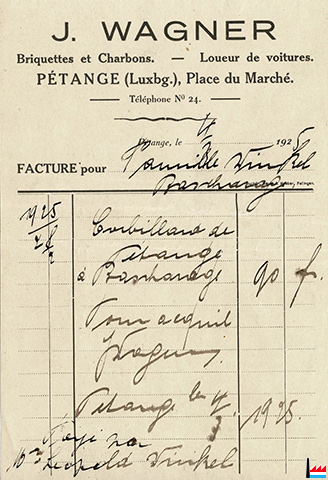 J. WAGNER
Briquettes et Charbons. — Loueur de voitures.
PÉTANGE (Luxbg.), Place du Marché.
Téléphone Nº 24.
Pétange, le 4/3 1925
FACTURE pour Famille Winkel
Bascharage
1925
Corbillard de
Pétange
à Bascharage 90 fr.
Pour acquit
JWagner
Pétange le 4/3 1925.
Payé par
Léopold Winkel